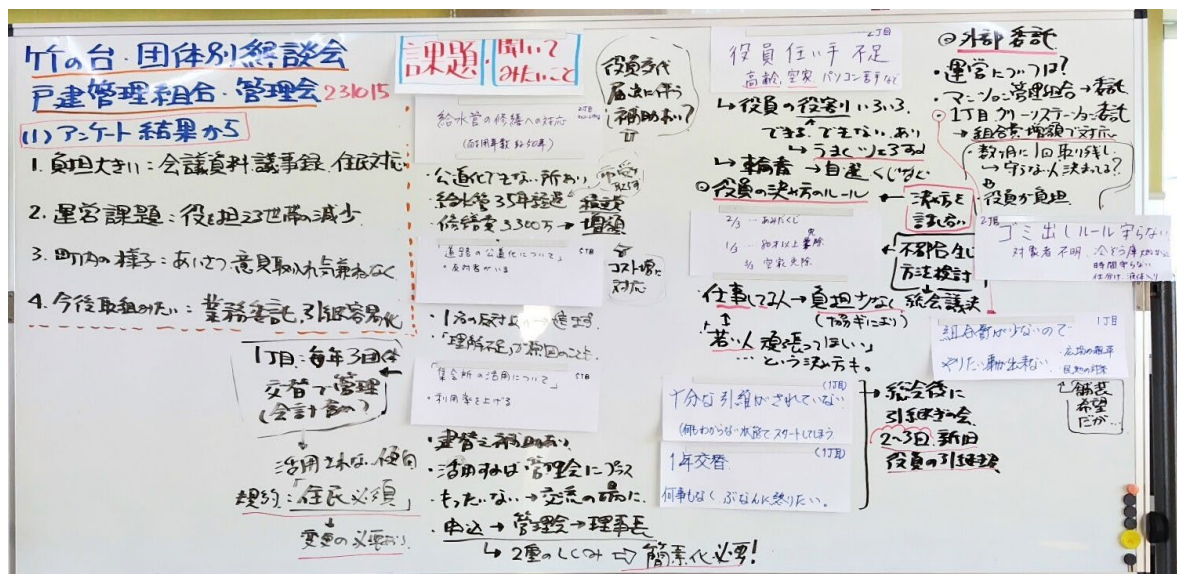 竹の台・団体別懇談会
戸建管理組合・管理会 231015
(1) アンケート結果から
1. 負担大きい：会議資料・議事録、住民対応
2. 運営課題：役を担える世帯の減少
3. 町内の様子：あいさつ、意見取入れ、気兼ねなく
4. 今後取組みたい：業務委託、引継容易化
1丁目：毎年3団体
交替で管理
(会計含め)
活用されない傾向
規約：「住民必須」
変更の必要あり
課題・聞いて
みたいこと
役員交代
届出に伴う
補助あい?
給水管の修繕への対応
(耐用年数 約40年)
・公道化できない所あり
・給水管35年経過
・修繕費3300万→増額
コスト増に
対応
「道路の公道化について」 1丁目
・反対者がいる
・1名の反対
・「理解不足」が原因のことも
「集会所の活用について」
・利用率を上げる
・建替え補助あり
・活用すれば管理会にプラス
・もったいない→交流の場に
・申込→管理会→理事長
↳2重のしくみ⇨簡素化必要!
2丁目
役員任い手不足
高齢、空家、パソコン苦手など
↳役員の役割りいろいろ
できる、できない、あり
↳輪番→自選、くじなど
◎役員の決め方のルール
2/3 … あみだくじ
1/3 … 80才以上免除
空家免除
決め方を
話し合い
不都合生じ
方法検討
総会議決
・仕事してる人→負担少なく
「若い人頑張ってほしい」
…という決め方も。
十分な引継がされていない (1丁目)
(何もわからない状態でスタートしてしまう
1年交替 (1丁目)
何事もなくぶなんに終りたい。
→総会後に
引継ぎの会
2〜3日、新旧
役員の引継ぎ
◎外部委託
・運営については?
・マンション管理組合→委託
・1丁目クリーンステーション委託
→組合費増額で対応
・数ヶ月に1回取り残し
→守らない人決まってる?
役員が負担
2丁目
ゴミ出しルール守らない
対象者不明
時間守らない
1丁目
組合費が少ないので
やりたい事が出来ない
補習
希望
だが…